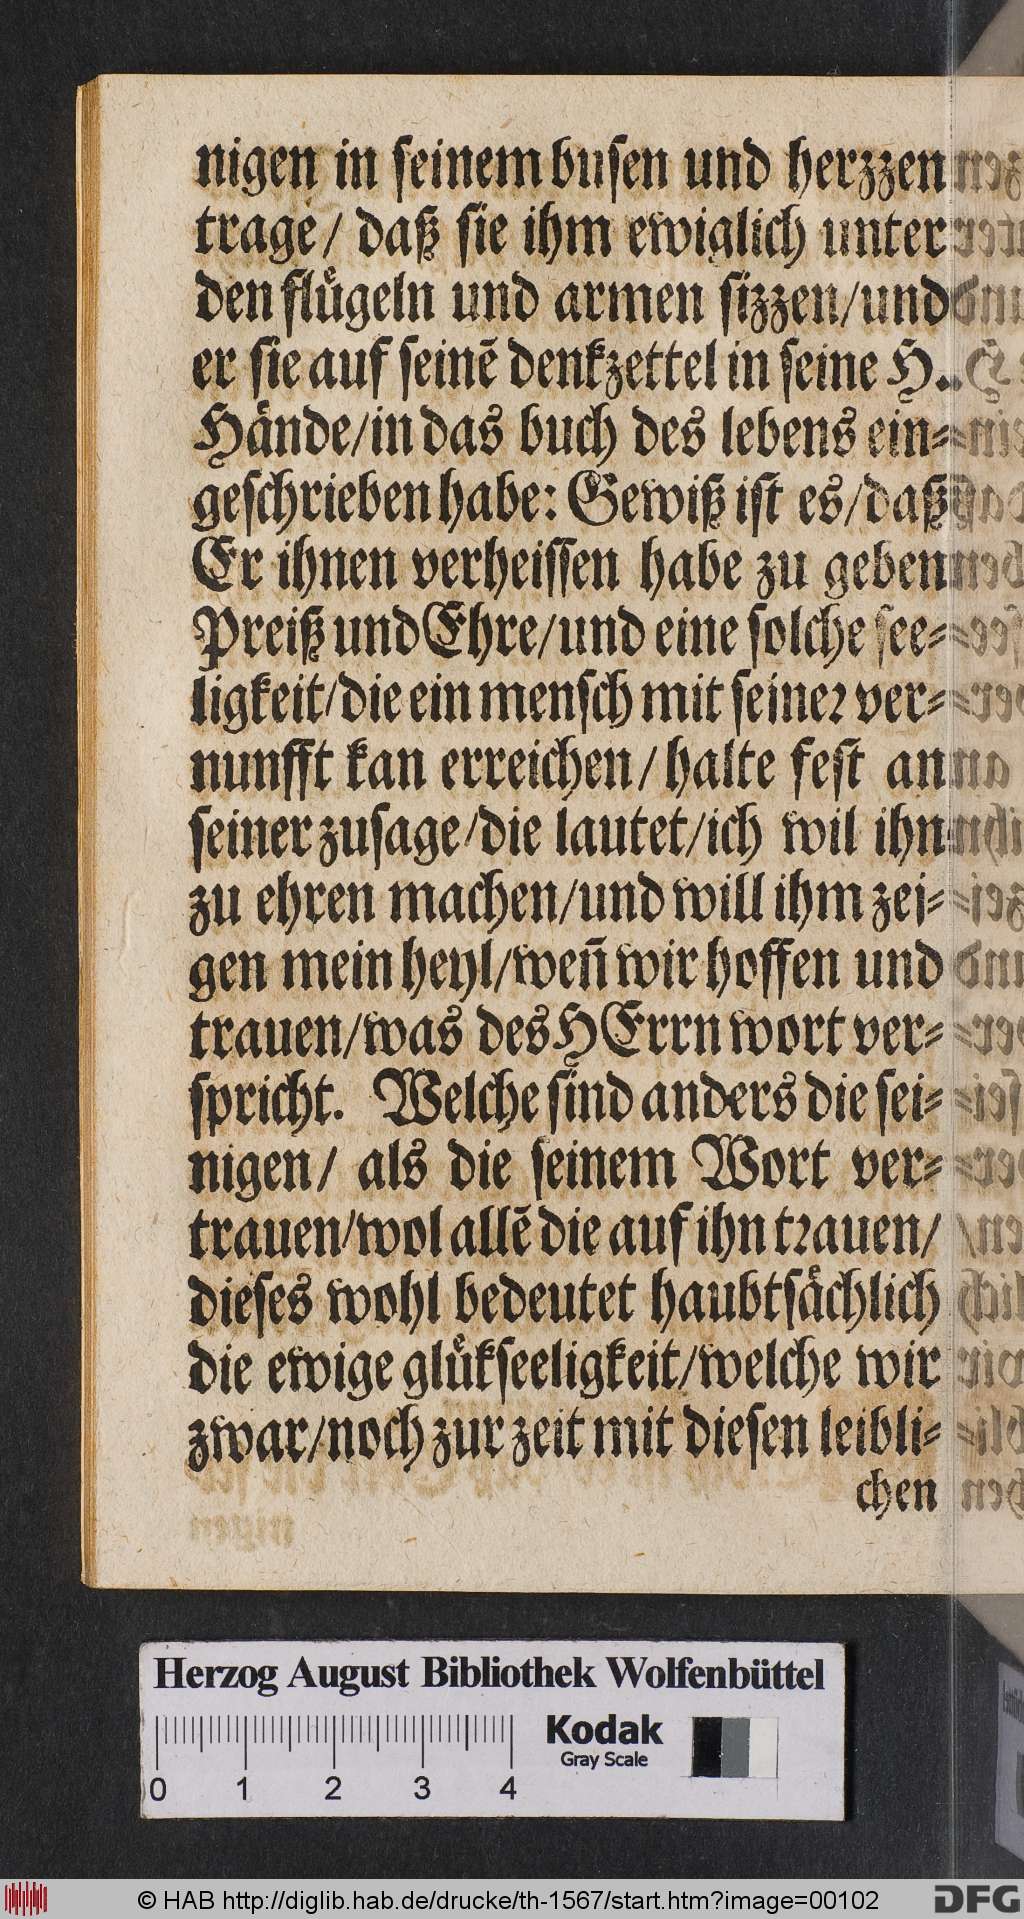 nigen in seinem busen und herzzen
trage/ daß sie ihm ewiglich unter
den fluͤgeln und armen sizzen/und
er sie auf seinē denkzettel in seine H.
Haͤnde/in das buch des lebens ein-
geschrieben habe: Gewiß ist es/daß
Er ihnen verheissen habe zu geben
Preiß und Ehre/und eine solche see-
ligkeit/die ein mensch mit seiner ver-
nunfft kan erreichen/halte fest an
seiner zusage/die lautet/ich wil ihn
zu ehren machen/und will ihm zei-
gen mein heyl/weñ wir hoffen und
trauen/was des HErrn wort ver-
spricht. Welche sind anders die sei-
nigen/ als die seinem Wort ver-
trauen/wol allē die auf ihn trauen/
dieses wohl bedeutet haubtsaͤchlich
die ewige gluͤkseeligkeit/welche wir
zwar/noch zur zeit mit diesen leibli-
chen
Herzog August Bibliothek Wolfenbüttel
0 1 2 3 4
Kodak
Gray Scale
© HAB http://diglib.hab.de/drucke/th-1567/start.htm?image=00102
DFG